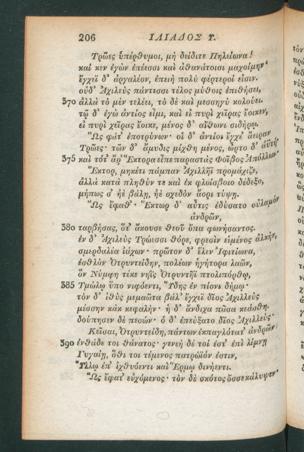 206 ΙΛΙΑΔΟΣ Υ.
Τρῶες ὑπέρθυμοι, μὴ δείδιτε Πηλείωνα!
καί κεν ἐγὼν ἐπέεσσι καὶ ἀθανάτοισι μαχοίμην·
ἔγχεϊ δ' ἀργαλέον, ἐπειὴ πολὺ φέρτεροί εἰσιν.
οὐδ' Ἀχιλεὺς πάντεσσι τέλος μύθοις ἐπιθήσει,
370 ἀλλὰ τὸ μὲν τελέει, τὸ δὲ καὶ μεσσηγὺ κολούει.
τῷ δ' ἐγὼ ἀντίος εἶμι, καὶ εἰ πυρὶ χεῖρας ἔοικεν,
εἰ πυρὶ χεῖρας ἔοικε, μένος δ' αἴθωνι σιδήρῳ.
Ὣς φάτ' ἐποτρύνων· οἱ δ' ἀντίοι ἔγχε' ἄειραν
Τρῶες· τῶν δ' ἄμυδις μίχθη μένος, ὦρτο δ' ἀϋτή·
375 καὶ τότ' ἄρ' Ἕκτορα εἶπε παραστὰς Φοῖβος Ἀπόλλων·
Ἕκτορ, μηκέτι πάμπαν Ἀχιλλῆϊ προμάχιζε,
ἀλλὰ κατὰ πληθύν τε καὶ ἐκ φλοίσβοιο δέδεξο,
μήπως σ' ἠὲ βάλῃ, ἠὲ σχεδὸν ἄορι τύψῃ.
Ὣς ἔφαθ'· Ἕκτωρ δ' αὖτις ἐδύσατο οὐλαμὸν
ἀνδρῶν,
380 ταρβήσας, ὅτ' ἄκουσε θεοῦ ὄπα φωνήσαντος.
ἐν δ' Ἀχιλεὺς Τρώεσσι θόρε, φρεσὶν εἱμένος ἀλκὴν,
σμερδαλέα ἰάχων· πρῶτον δ' ἕλεν Ἰφιτίωνα,
ἐσθλὸν Ὀτρυντείδην, πολέων ἡγήτορα λαῶν,
ὃν Νύμφη τέκε νηῒς Ὀτρυντῆϊ πτολιπόρθῳ,
385 Τμώλῳ ὕπο νιφόεντι, Ὕδης ἐν πίονι δήμῳ·
τὸν δ' ἰθὺς μεμαῶτα βάλ' ἔγχεϊ δῖος Ἀχιλλεὺς
μέσσην κὰκ κεφαλήν· ἡ δ' ἄνδιχα πᾶσα κεάσθη.
δούπησεν δὲ πεσών· ὁ δ' ἐπεύξατο δῖος Ἀχιλλεύς·
Κεῖσαι, Ὀτρυντείδη, πάντων ἐκπαγλότατ' ἀνδρῶν·
390 ἐνθάδε τοι θάνατος· γενεὴ δέ τοί ἐστ' ἐπὶ λίμνῃ
Γυγαίῃ, ὅθι τοι τέμενος πατρώϊόν ἐστιν,
Ὕλλῳ ἐπ' ἰχθυόεντι καὶ Ἕρμῳ δινήεντι.
Ὣς ἔφατ' εὐχόμενος· τὸν δὲ σκότος ὄσσε κάλυψεν·